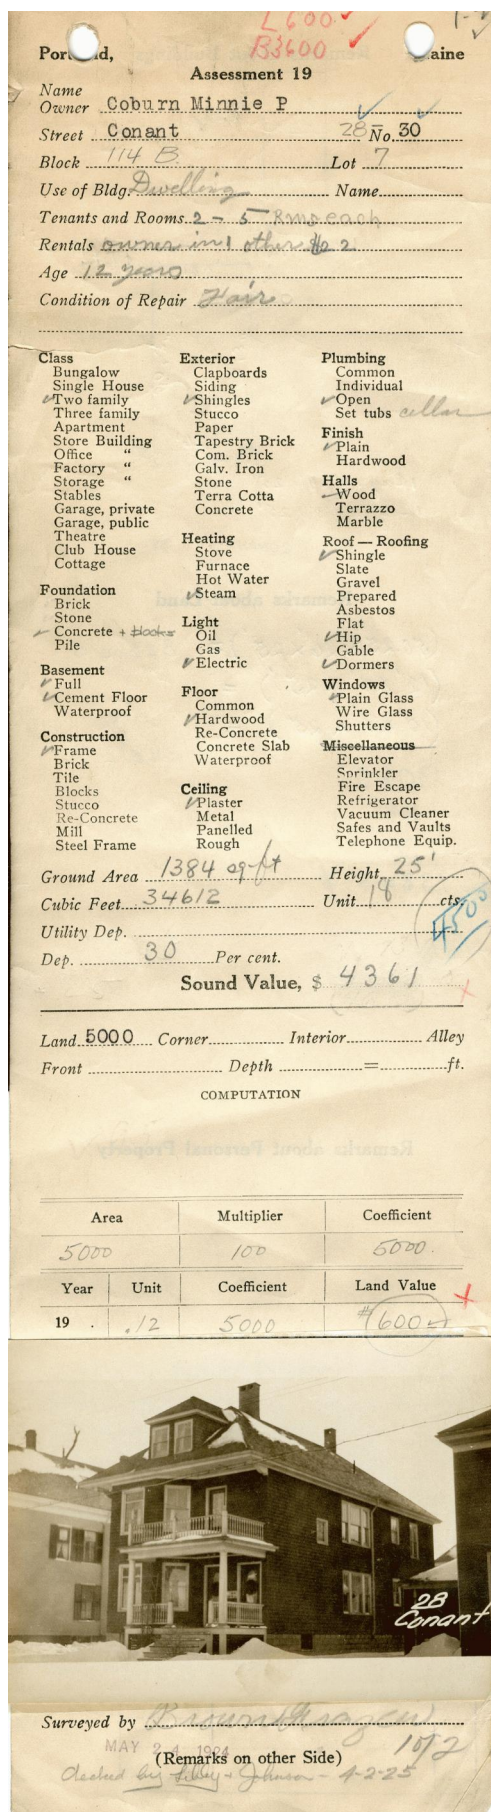 L 600
B 3600
Portland, Maine
Assessment 19
Name
Owner Coburn Minnie P
Street Conant 28- No. 30
Block 114 B Lot 7
Use of Bldg. Dwelling Name
Tenants and Rooms 2 - 5 Rms each
Rentals owner in 1 other
Age 12 years
Condition of Repair Fair
Class
Bungalow
Single House
Two family
Three family
Apartment
Store Building
Office "
Factory "
Storage "
Stables
Garage, private
Garage, public
Theatre
Club House
Cottage
Foundation
Brick
Stone
Concrete + blocks
Pile
Basement
Full
Cement Floor
Waterproof
Construction
Frame
Brick
Tile
Blocks
Stucco
Re-Concrete
Mill
Steel Frame
Exterior
Clapboards
Siding
Shingles
Stucco
Paper
Tapestry Brick
Com. Brick
Galv. Iron
Stone
Terra Cotta
Concrete
Heating
Stove
Furnace
Hot Water
Steam
Light
Oil
Gas
Electric
Floor
Common
Hardwood
Re-Concrete
Concrete Slab
Waterproof
Ceiling
Plaster
Metal
Panelled
Rough
Plumbing
Common
Individual
Open
Set tubs cellar
Finish
Plain
Hardwood
Halls
Wood
Terrazzo
Marble
Roof — Roofing
Shingle
Slate
Gravel
Prepared
Asbestos
Flat
Hip
Gable
Dormers
Windows
Plain Glass
Wire Glass
Shutters
Miscellaneous
Elevator
Sprinkler
Fire Escape
Refrigerator
Vacuum Cleaner
Safes and Vaults
Telephone Equip.
Ground Area 1384 sq-ft Height 25'
Cubic Feet 34612 Unit 18 cts.
4500
Utility Dep.
Dep. 30 Per cent.
Sound Value, $ 4361
Land 5000 Corner Interior Alley
Front Depth = ft.
COMPUTATION
Area Multiplier Coefficient
5000 100 5000.
Year Unit Coefficient Land Value
19 . .12 5000 $600
28
Conant
Surveyed by Brown
MAY 24 1924
(Remarks on other Side)
Johnson - 4-2-25